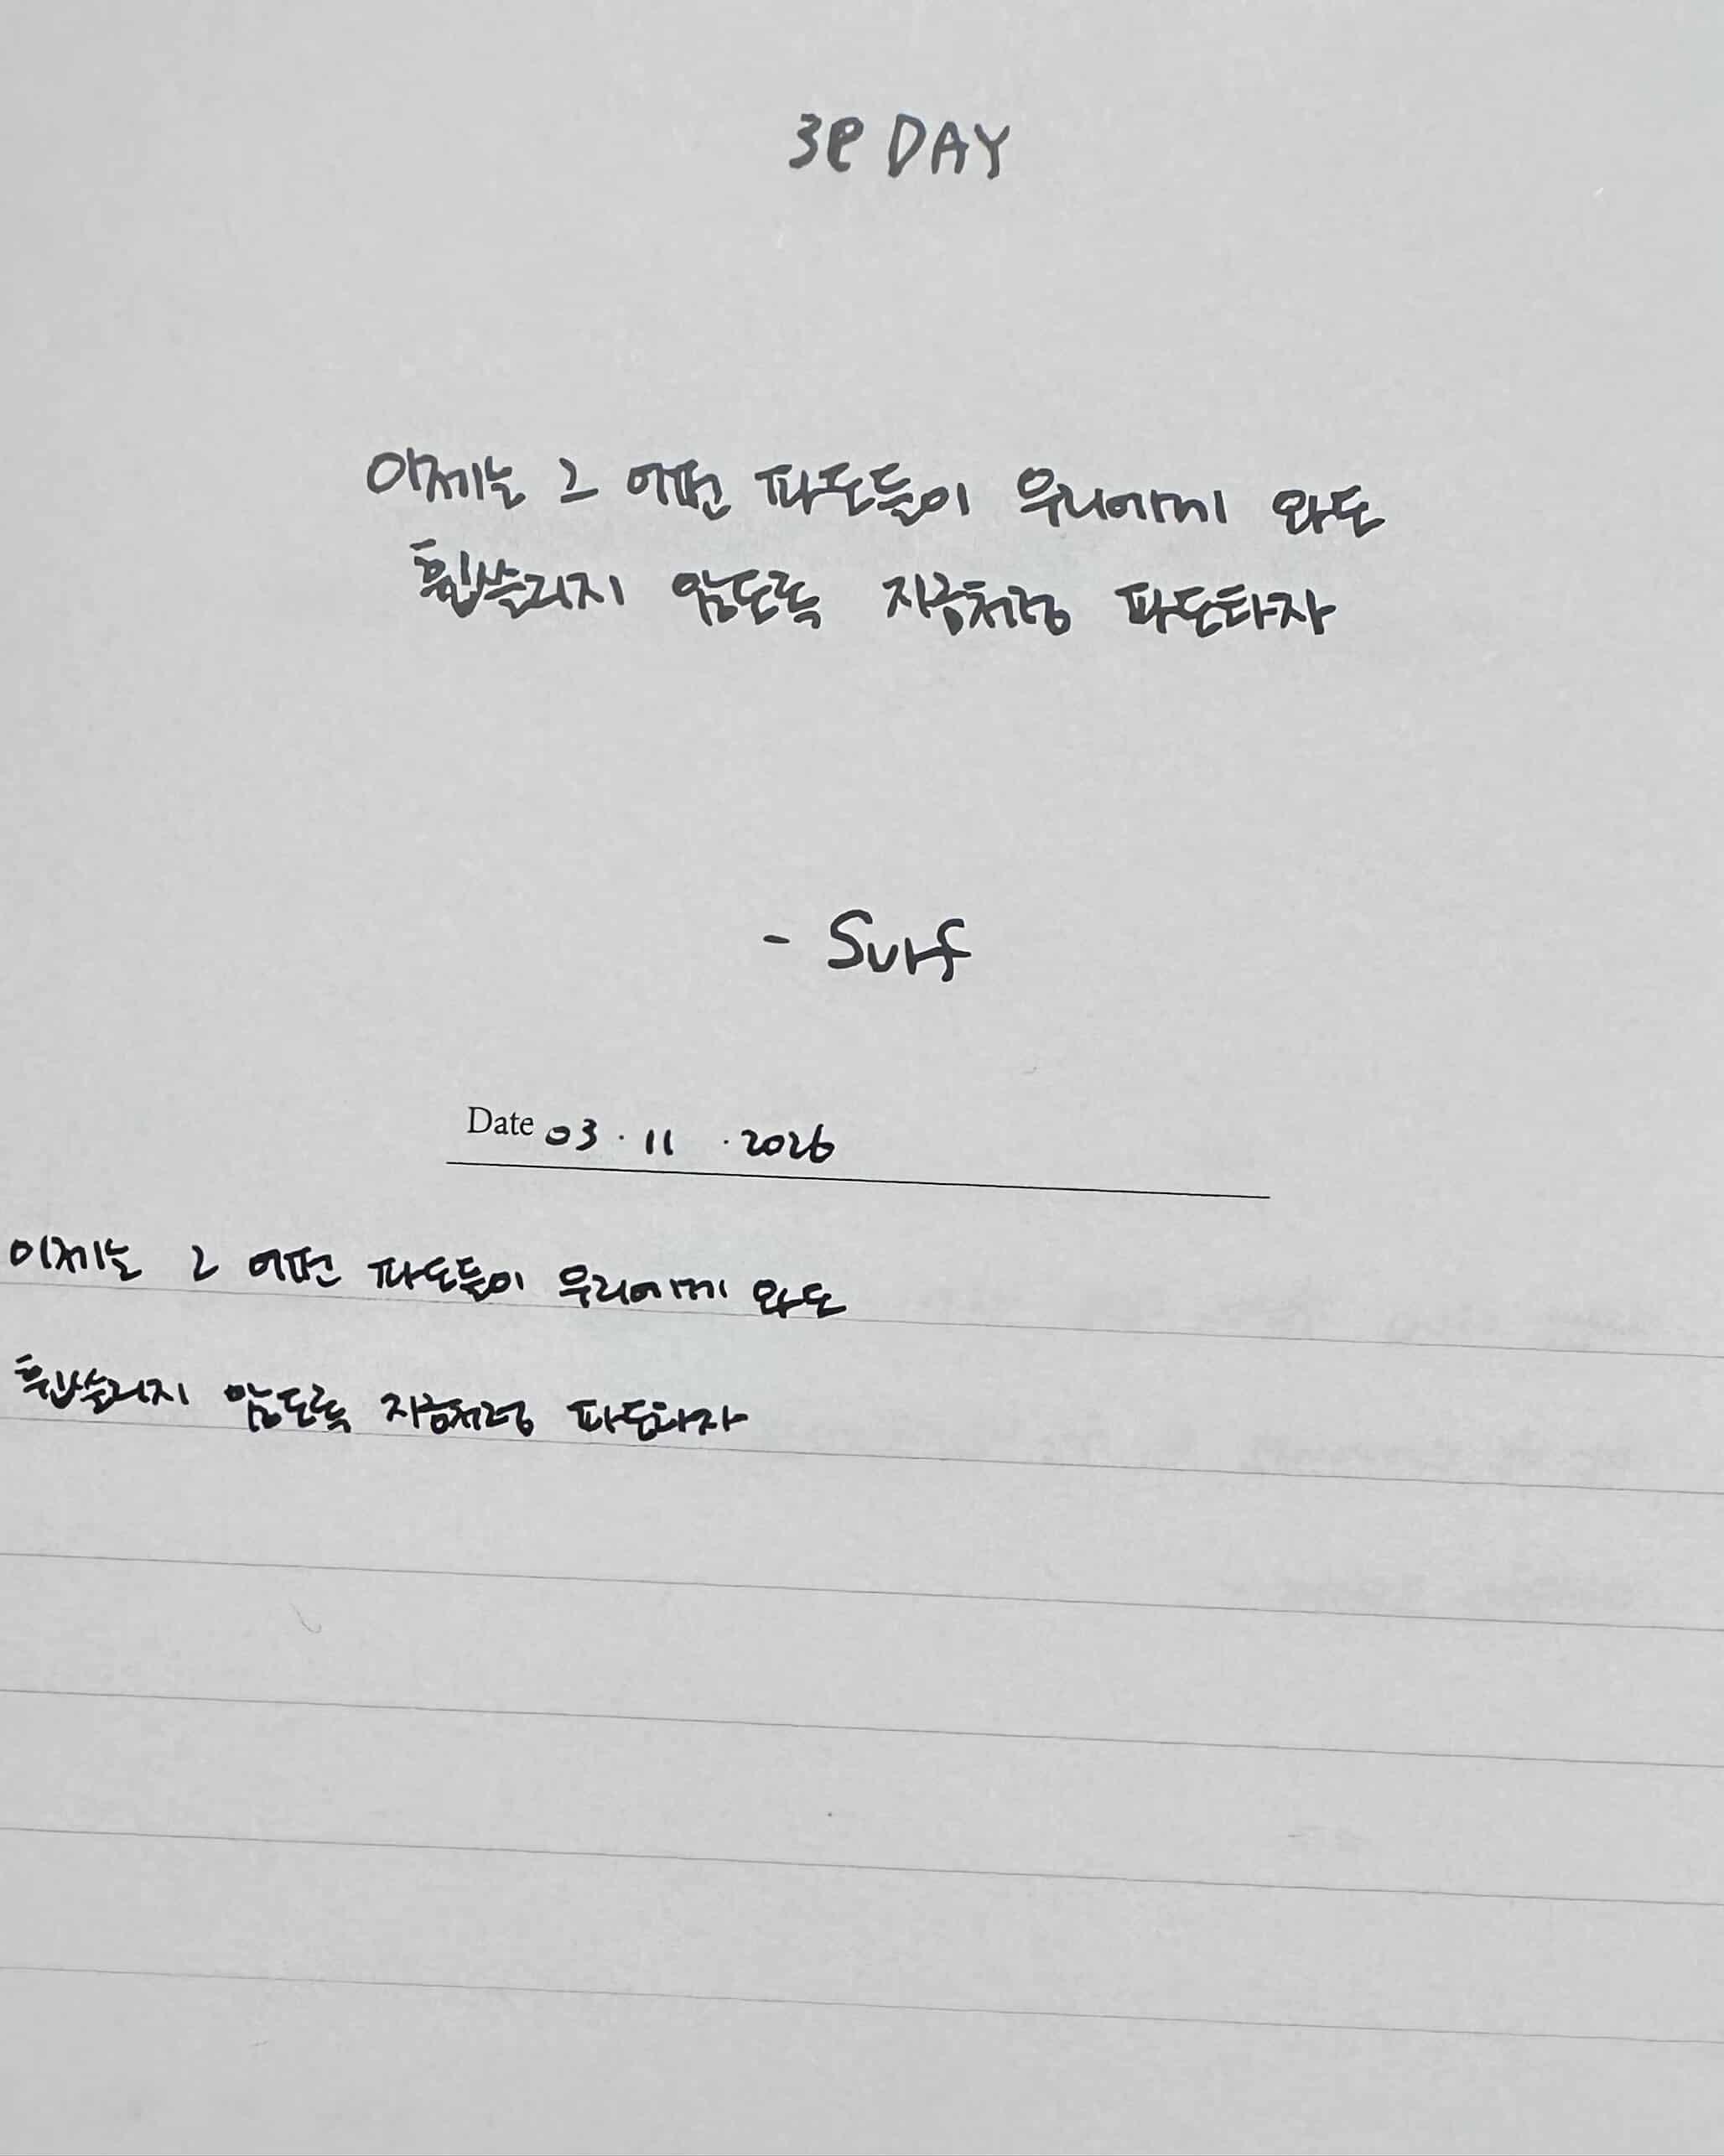 38 DAY
이제는 그 어떤 파도들이 우리에게 와도
휩쓸리지 않도록 지금처럼 파도타자
- Surf
Date 03 · 11 · 2026
이제는 그 어떤 파도들이 우리에게 와도
휩쓸리지 않도록 지금처럼 파도타자